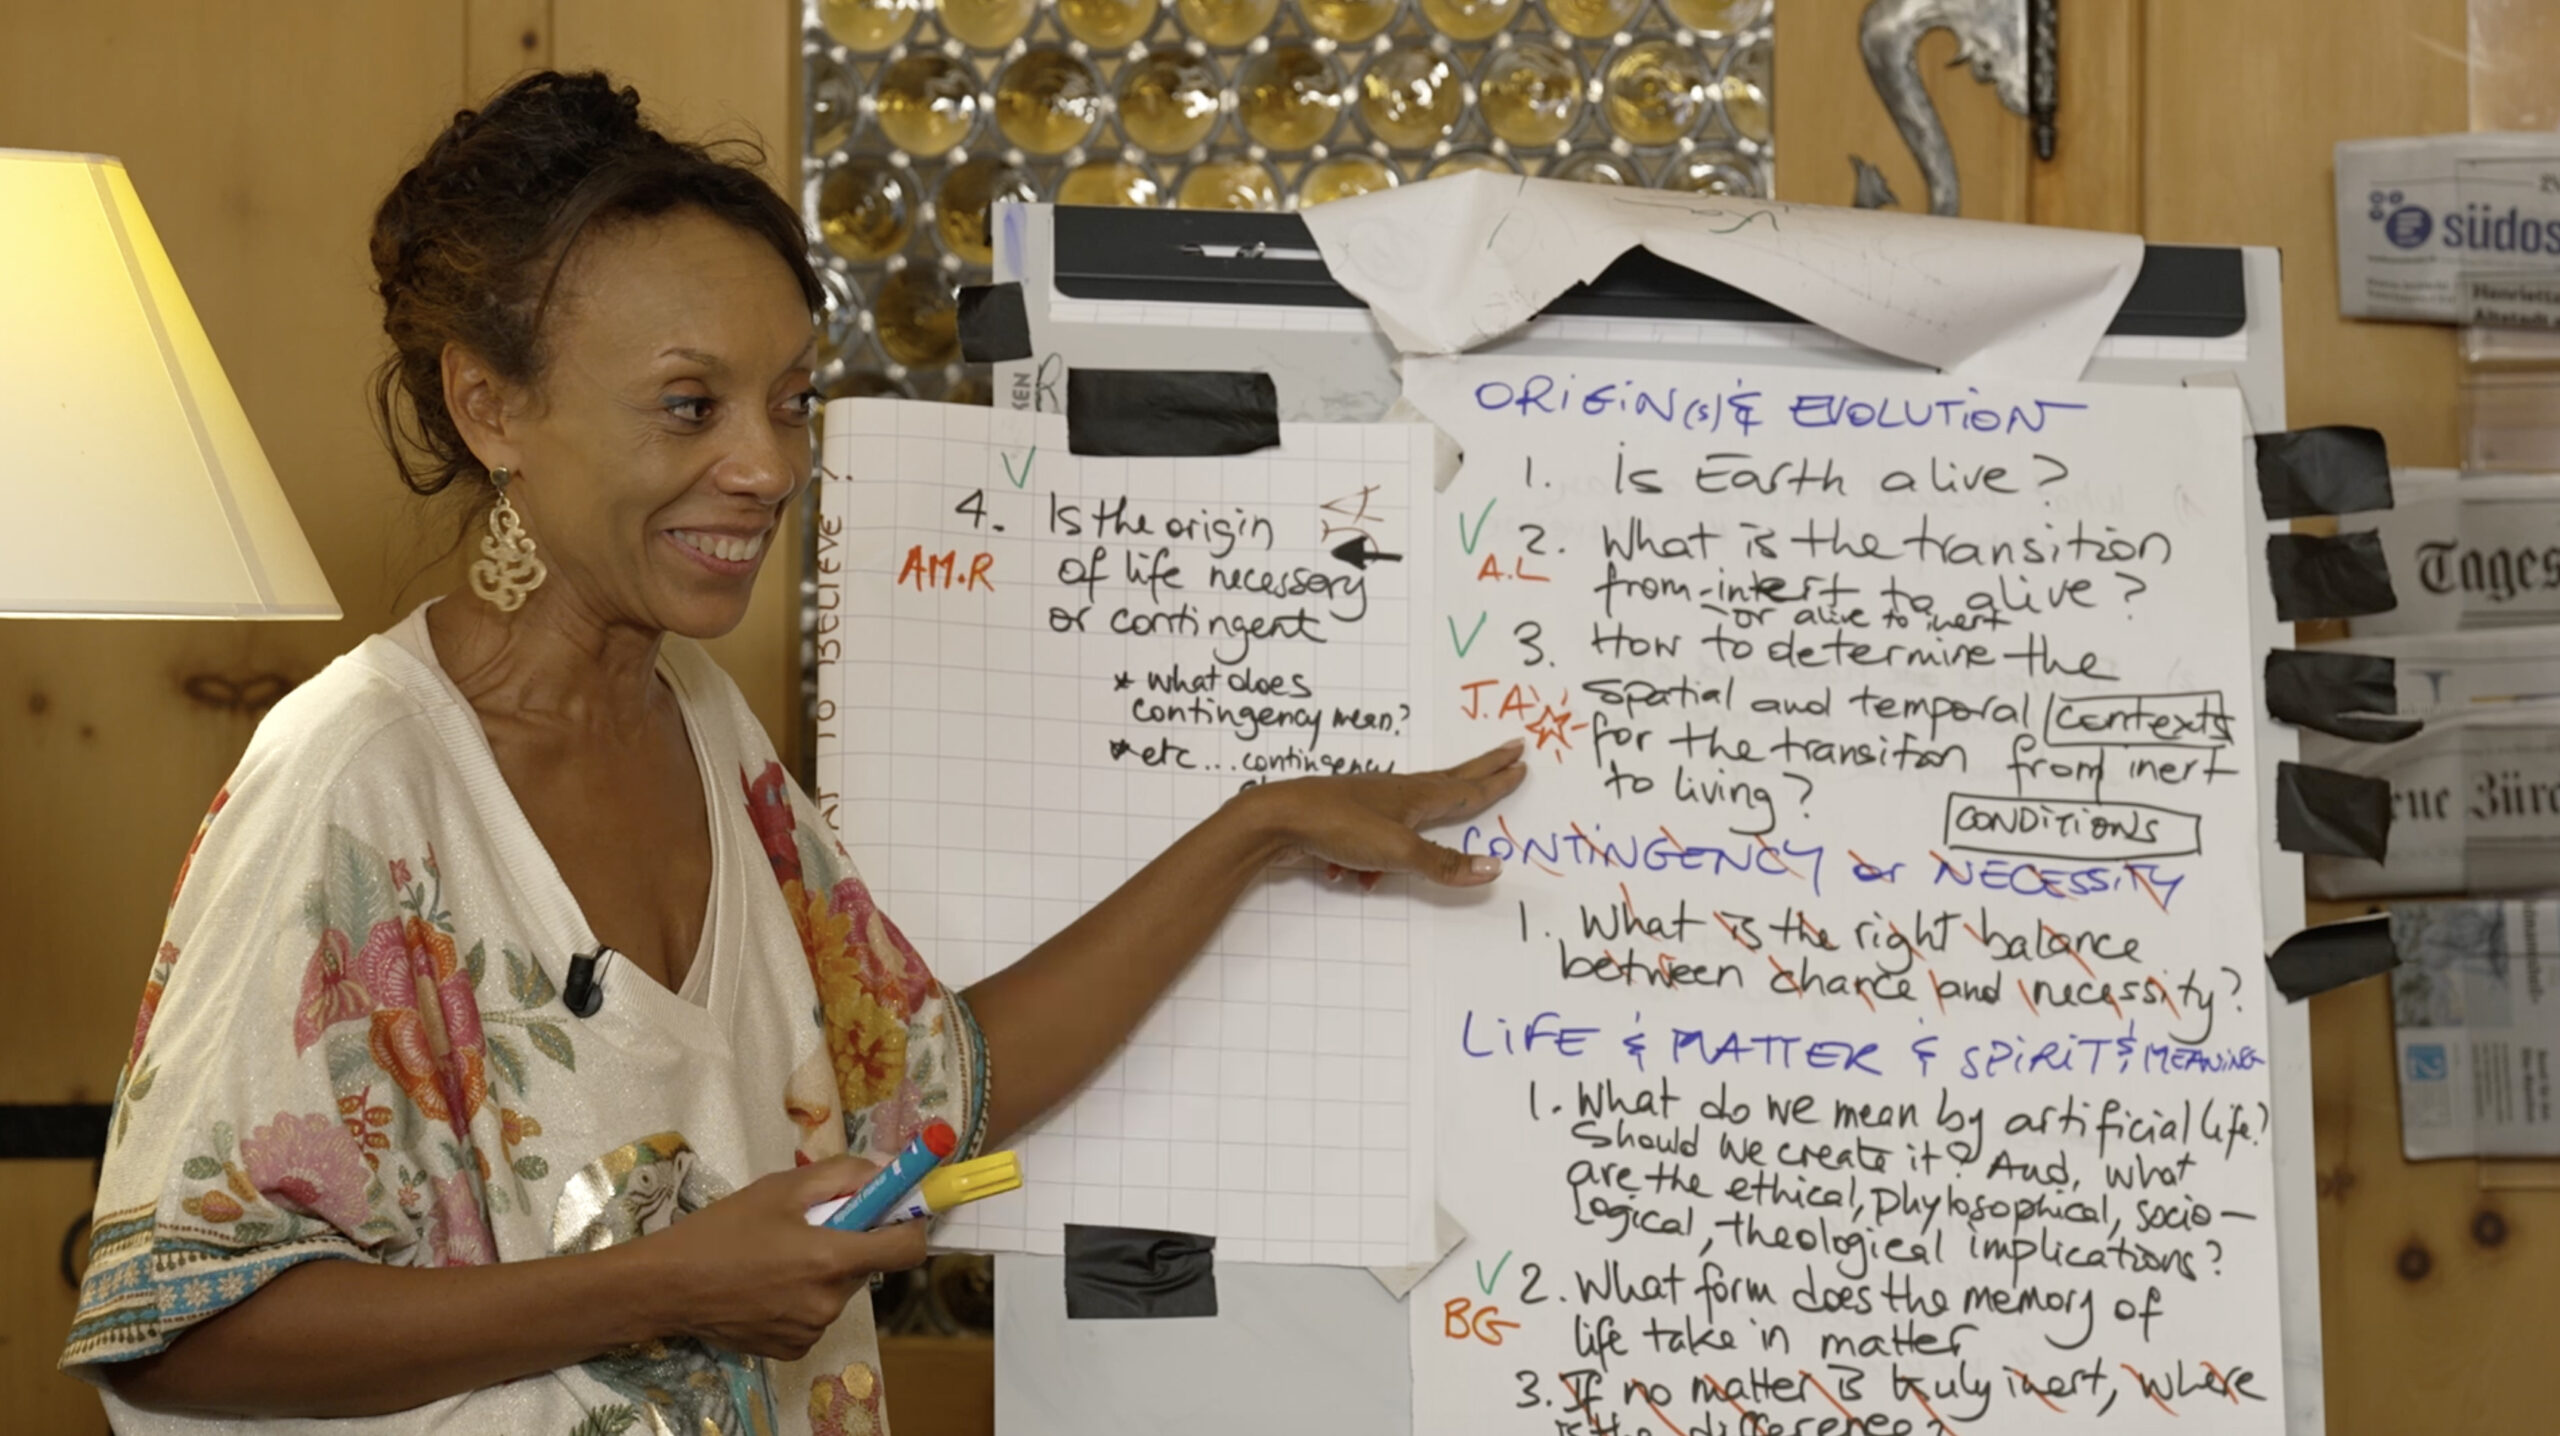 4. Is the origin
AM.R
of life necessary
or contingent
* what does
contingency mean?
* etc... contingency
TO BELIEVE?
ORIGIN(s) & EVOLUTION
1. is Earth alive?
2. What is the transition
A.L
from inert to alive?
or alive to inert
3. How to determine the
J.A
spatial and temporal contexts
for the transiton from inert
to living?
CONDITIONS
CONTINGENCY or NECESSITY
1. What is the right balance
between chance and necessity?
LIFE & MATTER & SPIRIT & MEANING
1. What do we mean by artificial life?
Should we create it? And, what
are the ethical, phylosophical, socio-
logical, theological implications?
2. What form does the memory of
BG
life take in matter
3. If no matter is truly inert, where
is the difference?
südos
Tages